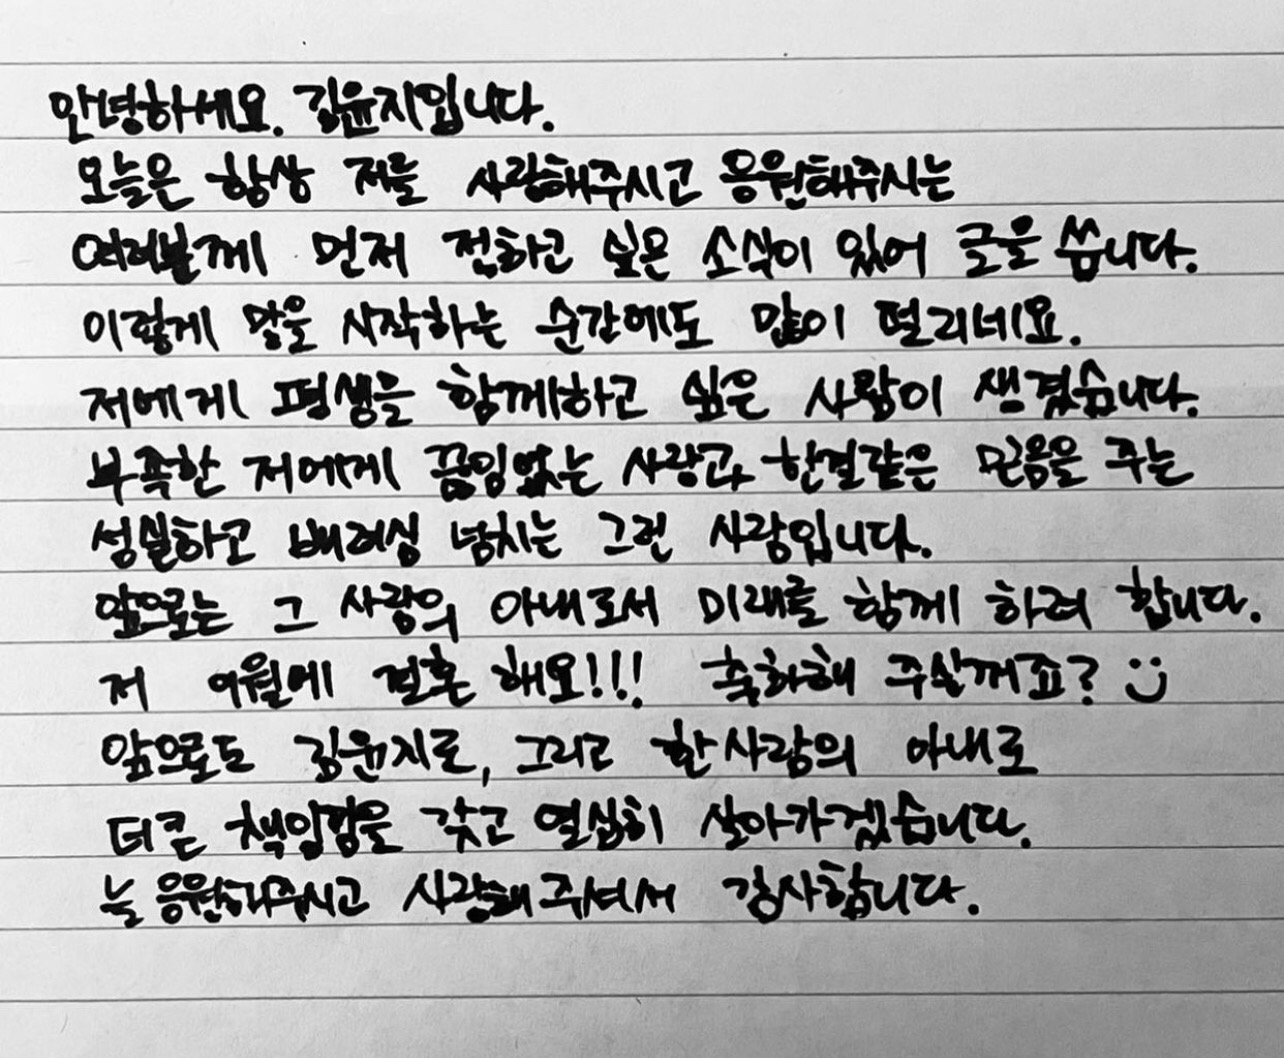 안녕하세요. 김윤지입니다.
오늘은 항상 저를 사랑해주시고 응원해주시는
여러분께 먼저 전하고 싶은 소식이 있어 글을 씁니다.
이렇게 말을 시작하는 순간에도 많이 떨리네요.
저에게 평생을 함께하고 싶은 사람이 생겼습니다.
부족한 저에게 끊임없는 사랑과 한결같은 믿음을 주는
성실하고 배려심 넘치는 그런 사람입니다.
앞으로는 그 사람의 아내로서 미래를 함께 하려 합니다.
저 9월에 결혼 해요!!! 축하해 주실꺼죠? :)
앞으로도 김윤지로, 그리고 한 사람의 아내로
더 큰 책임감을 갖고 열심히 살아가겠습니다.
늘 응원해주시고 사랑해 주셔서 감사합니다.